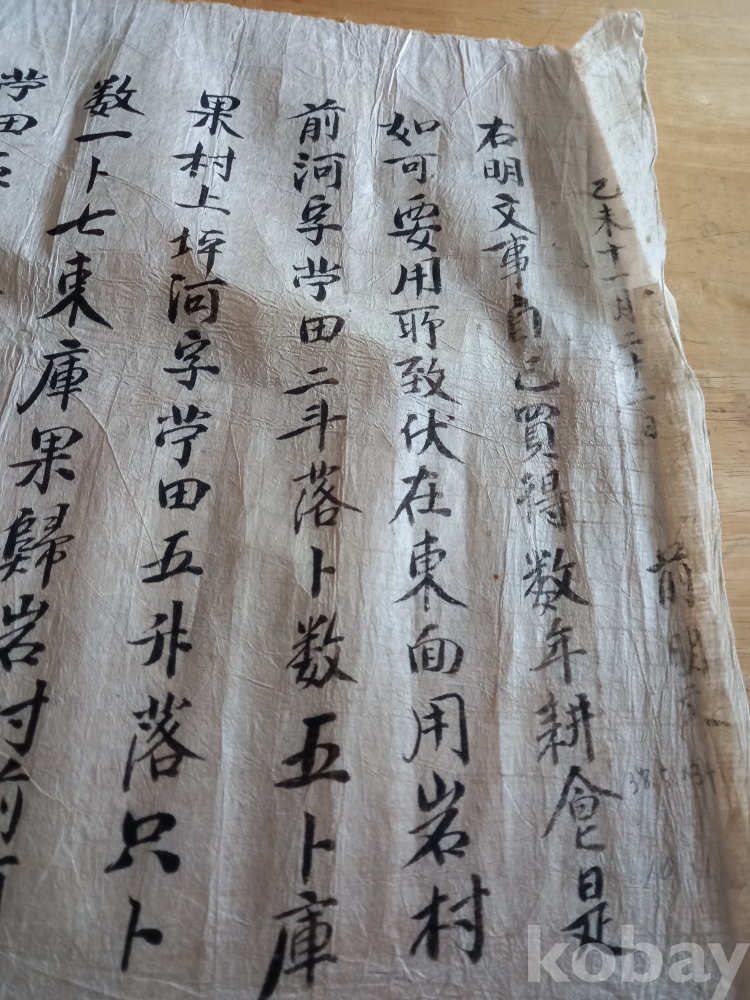 乙未十一月二十二日 前明文
右明文事自己買得数年耕食是
如可要用所致伏在東面用岩村
前河字苧田二斗落卜数五卜庫
果村上坪河字苧田五升落只卜
数一卜七束庫果歸岩村前
苧田
kobay